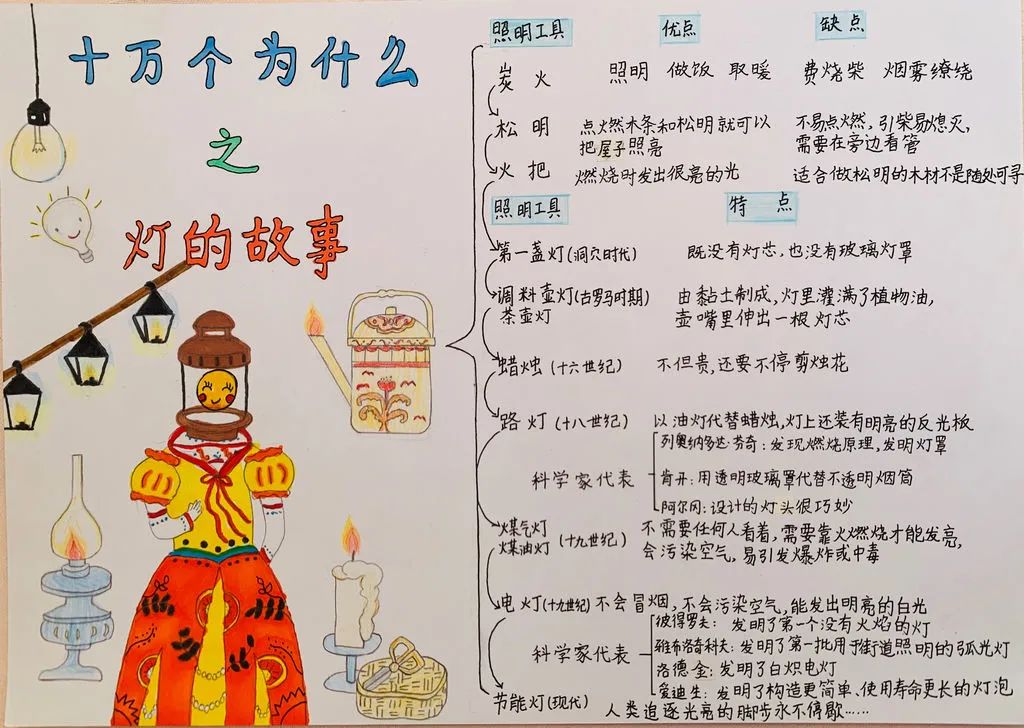 十万个为什么
之
灯的故事
照明工具 优点 缺点
炭火 照明 做饭 取暖 费烧柴 烟雾缭绕
松明 点燃木条和松明就可以 不易点燃,引柴易熄灭,
把屋子照亮 需要在旁边看管
火把 燃烧时发出很亮的光 适合做松明的木材不是随处可寻
照明工具 特点
第一盏灯(洞穴时代) 既没有灯芯,也没有玻璃灯罩
调料壶灯(古罗马时期) 由黏土制成,灯里灌满了植物油,
茶壶灯 壶嘴里伸出一根灯芯
蜡烛(十六世纪) 不但贵,还要不停剪烛花
路灯(十八世纪) 以油灯代替蜡烛,灯上还装有明亮的反光板
列奥纳多达·芬奇:发现燃烧原理,发明灯罩
科学家代表 肯开:用透明玻璃罩代替不透明烟筒
阿尔冈:设计的灯头很巧妙
煤气灯 不需要任何人看着,需要靠火燃烧才能发亮,
煤油灯(十九世纪) 会污染空气,易引发爆炸或中毒
电灯(十九世纪) 不会冒烟,不会污染空气,能发出明亮的白光
彼得罗夫:发明了第一个没有火焰的灯
科学家代表 雅布洛奇科夫:发明了第一批用于街道照明的弧光灯
洛德金:发明了白炽电灯
爱迪生:发明了构造更简单、使用寿命更长的灯泡
节能灯(现代) 人类追逐光亮的脚步永不停歇……